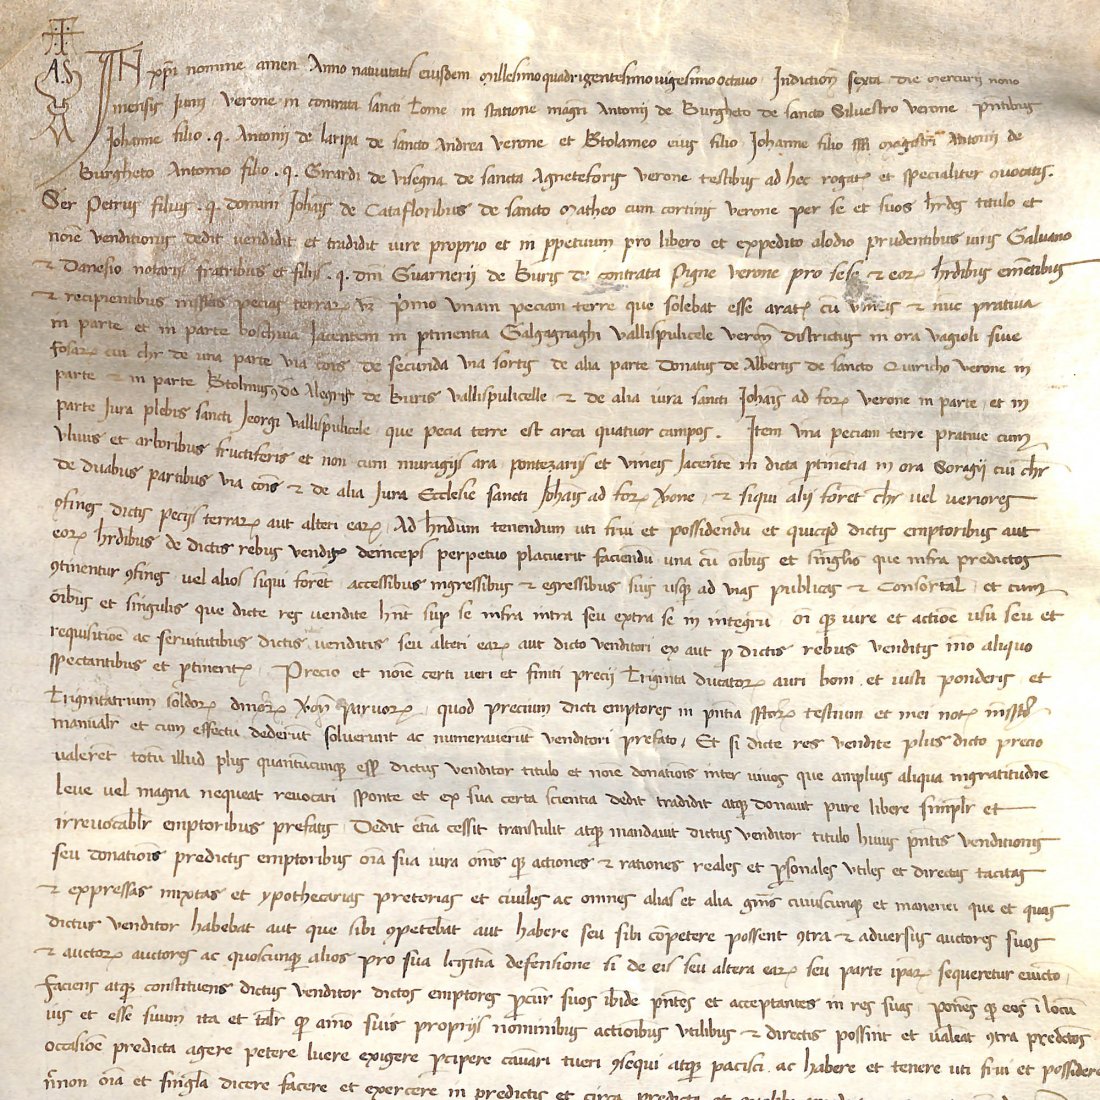 IN xp̄i nomine amen Anno nativitatis eiusdem Millesimoquadrigentesimovigesimooctavo Indictioñ sexta die mercurij nono
mensis Junij verone in contrata sancti Tome in statione mag̃ri Antonij de Burgheto de sancto Silvestro verone p̄ntibus
Johanne filio .q. Antonij de laripa de sancto Andrea verone et Btolameo eius filio Johanne filio magistri Antonij de
Burgheto Antonio filio .q. Girardi de visegna de sancta Agneteforis verone testibus ad hec rogatꝭ et specialiter vocatis.
Ser Petrus filius .q. domini Joħis de Catafloribus de sancto Matheo cum cortinis verone per se et suos ħrdes titulo et
noīe venditionis dedit vendidit et tradidit iure proprio et in ꝑpetuum pro libero et expedito alodio prudentibus viris Galvano
et Danesio notarijs fratribus et filijs .q. dn̄i Guarnerij de Buris de contrata Pigne verone pro sese et eoꝝ ħrdibus eme͂tibus
et recipientibus infrās pecias terraꝝ vꝫ p̄imo unam peciam terre que solebat esse aratꝭ cū vineis et nūc prativa
in parte et in parte boschiva Jacentem in ꝑtinentia Gargagnaghi vallispulicele veroñ districtus in ora vagioli sive
fosaꝝ cui cħr de una parte via cōis de secunda via sortis de alia parte Donatus de Albertis de sancto Quiricho verone in
parte et in parte Btolmeus .q. dn̄i Alegrij de Buris vallispulicelle et de alia iura sancti Joħis ad foꝝ verone in parte et in
parte Jura plebis sancti Jeorgij vallispulicele que pecia terre est circa quatuor campos. Item una peciam terre prative cum
ulivis et arboribus fructiferis et non cum muragijs ara pontezarijs et vineis Jacente in dicta ꝑtinētia in ora Soragij cui cħr
de duabus partibus via cōis et de alia Jura Ecclesie sancti Joħis ad foꝝ ṽone et siqui alij foret cħr vel veriores
ꝯfines dictis pecijs terraꝝ aut alteri eaꝝ Ad ħndum tenendum uti frui et possidendū et quicqd dictis emptoribus aut
eoꝝ ħrdibus de dictis rebus venditꝭ deinceps perpetuo placuerit faciendū una cū oībus et singlis que infra predictos
ꝯtinentur ꝯfines vel alios siqui foret accessibus ingressibus et egressibus suis usqꝫ ad vias publicas et Consortaļ et cum
oībus et singulis que dicte res vendite ħnt sup se infra intra seu extra se in integrū oī qꝫ iure et actioē usu seu et
requisitioē ac servitutibus dictis venditis seu alteri eaꝝ aut dicto venditori ex aut ꝑ dictis rebus venditis mo aliquo
spectantibus et ꝑtinentꝭ Precio et noīe certi veri et finiti precij Triginta ducatoꝝ auri boni et iusti ponderis et
Trigintatrium soldoꝝ dn̄ioꝝ ṽoñ parvoꝝ quod precium dicti emptores in pn̄tia testium et mei notꝭ
manualr̄ et cum effectu dederūt solverunt ac numeraverūt venditori prefato, Et si dicte res vendite plus dicto precio
valeret totū illud plus quantucunqꝫ eēt dictus venditor titulo et noīe donationis inter vivos que amplius aliqua ingratitudīe
leve vel magna nequeat revocari sponte et ex sua certa scientia dedit tradidit atqꝫ donavit pure libere simplr̄ et
irrevocablr̄ emptoribus prefatis Dedit etīa cessit transtulit atqꝫ mandavit dictus venditor titulo huius pn̄tis venditionis
seu donationis predictis emptoribus oīa sua iura omēs qꝫ actiones et rationes reales et ꝑsonales utiles et directas tacitas
et expressas mixtas et ypothecarias pretorias et civiles ac omnes alias et alia gn̄is cuiuscunqꝫ et maneriei que et quas
dictus venditor habebat aut que sibi ꝯpetebat aut habere seu sibi cōpetere possent ꝯtra et adversus auctores suos
et auctoꝝ auctores ac quoscunqꝫ alios pro sua legitīa defensione si de eis seu altera eaꝝ seu parte ipaꝝ sequeretur evictio
faciens atqꝫ constituens dictus venditor dictos emptores ꝓcur̄ suos ibide pn̄tes et acceptantes in res suas ponēs qꝫ eos ī locū
ius et esse suum ita et talr̄ qꝫ amō suis proprijs nominibus actionibus utilibus et directis possint et valeat ꝯtra predictos
occasioē predicta agere petere luere exigere ꝑcipere cauari tueri ꝯsequi atqꝫ pacisci ac habere et tenere uti frui et possidere
n̄non oīa et singla dicere facere et exercere in predictis et circa predicta et